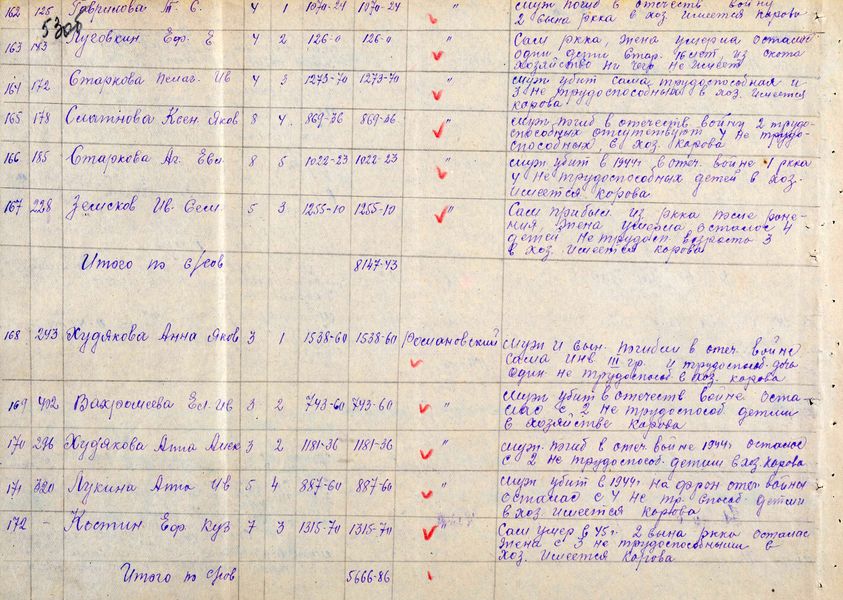 162 125 Гаврилова Т С. 4 1 1070-24 1070-24 " муж погиб в отечеств войну
2 сына ркка в хоз. имеется корова
530б
163 143 Лусовкин Ефр. Е 4 2 126-0 126-0 " Сам ркка жена умерла остались
одни дети стар. 16 лет из скота
хозяйство ни чего не имеет
164 172 Старкова Пелаг. Ив 4 3 1273-70 1273-70 " муж убит сама трудоспособная и
3 не трудоспособных в хоз. имеется
корова
165 178 Ксен. Яков 8 4 869-36 869-36 " муж погиб в отечеств. войну 2 трудо-
способных отсутствуют 4 не трудо-
способных в хоз. корова
166 185 Старкова Аг. Евд. 8 5 1022-23 1022-23 " муж убит в 1944г в отеч. войне 1 ркка
4 не трудоспособных детей в хоз.
имеется корова
167 228 Земсков Ив. Сем. 5 3 1255-10 1255-10 " Сам прибыл из ркка после ране-
ния, жена умерла осталось 4
детей не трудосп. возраста 3
в хоз. имеется корова
Итого по с/сов 8147-43
168 243 Худякова Анна Яков 3 1 1538-60 1538-60 Романовский муж и сын погибли в отеч. войне
сама инв III гр. и трудоспособ. дочь
один не трудоспособ в хоз. корова
169 402 Вахромеева Ел. Ив 3 2 743-60 743-60 " муж убит в отечеств войне оста-
лась с 2 не трудоспособ. детьми
в хозяйстве корова
170 296 Худякова Анна Алек 3 2 1181-36 1181-36 " муж погиб в отеч войне 1944г осталась
с 2 не трудоспособ. детьми в хоз. корова
171 320 Лукина Анна Ив 5 4 887-60 887-60 " муж убит в 1944г на фрон отеч войны
осталась с 4 не тр. способ. детьми
в хоз. имеется корова
172 - Костин Ефр Куз 7 3 1315-70 1315-70 " Сам умер в 45г. 2 сына ркка осталась
жена с 3 не трудоспособными в
хоз. имеется корова
Итого по с/сов 5666-86